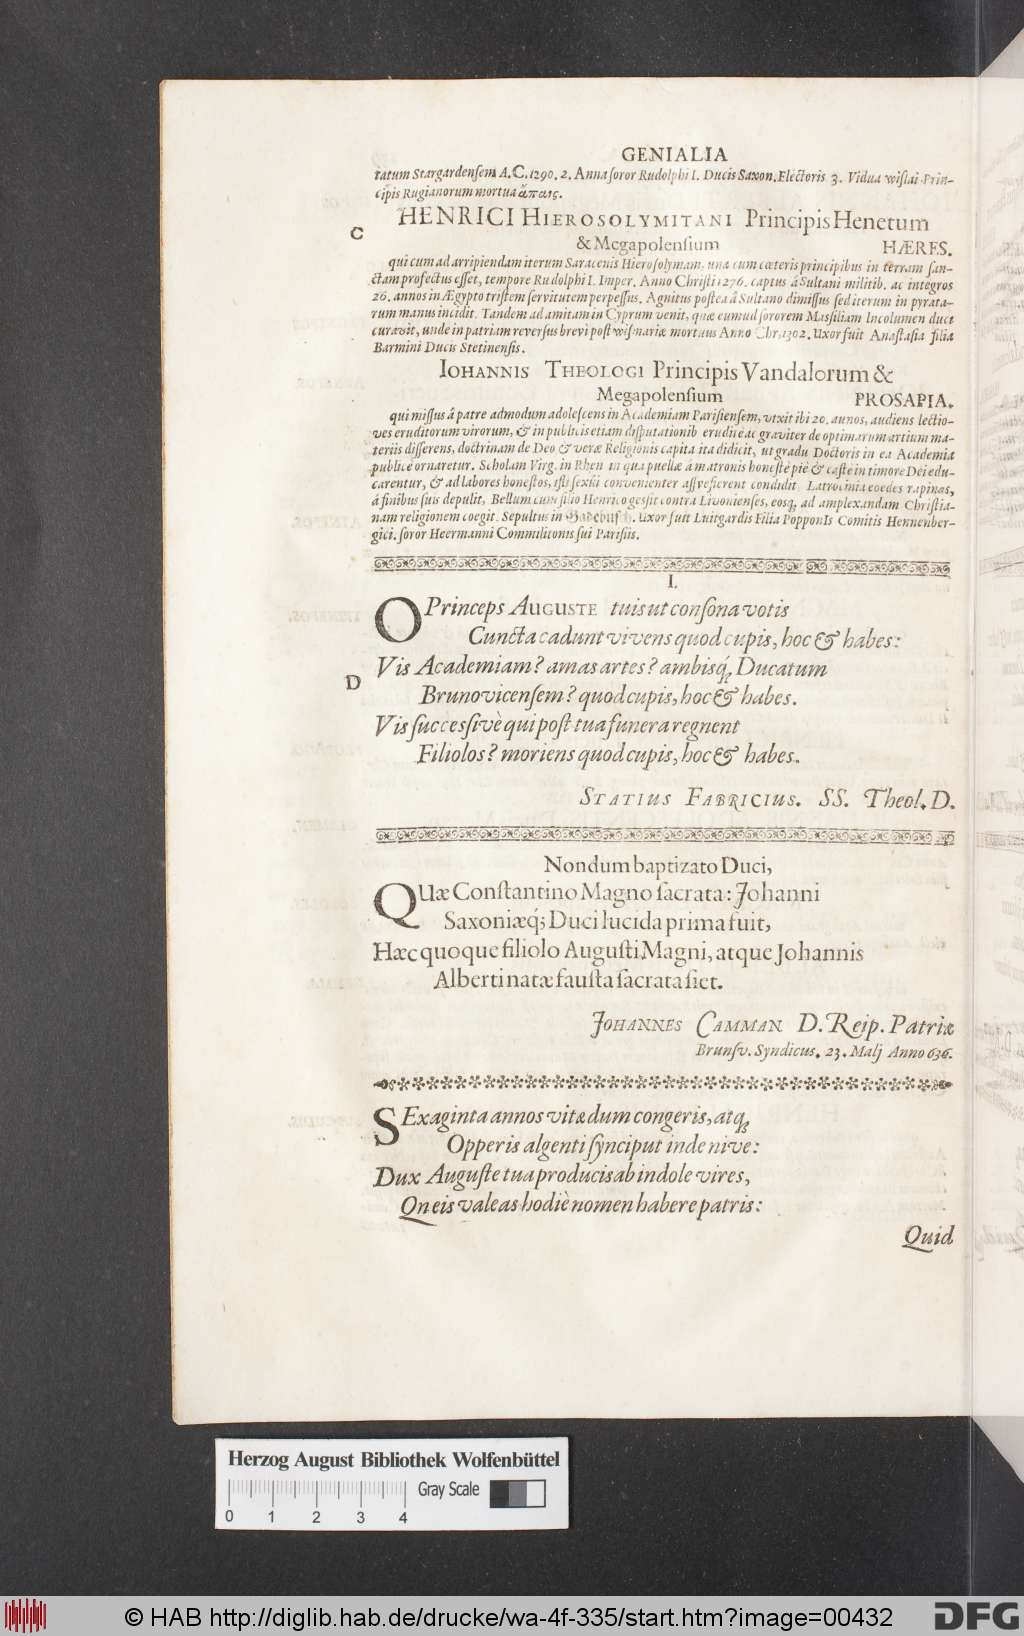 GENIALIA
tatum Stargardensem A.C. 1290. 2. Anna soror Rudolphi I. Ducis Saxon. Electoris 3. Vidua wislai Prin-
cipis Rugianorum mortua ἄπαις.
HENRICI HIEROSOLYMITANI Principis Henetum
C
& Megapolensium HÆRES.
qui cum ad arripiendam iterum Saracenis Hierosolymam, una cum cæteris principibus in terram san-
ctam profectus esset, tempore Rudolphi I. Imper. Anno Christi 1276. captus á Sultani militib. ac integros
26. annos in Ægypto tristem servitutem perpessus. Agnitus postea á Sultano dimissus sed iterum in pyrata-
rum manus incidit. Tandem ad amitam in Cyprum venit, quæ eum ad sororem Massiliam Incolumen duci
curavit, unde in patriam reversus brevi post wismariæ mortuus Anno Chr. 1302. Uxor fuit Anastasia filia
Barmini Ducis Stetinensis.
IOHANNIS THEOLOGI Principis Vandalorum &
Megapolensium PROSAPIA.
qui missus á patre admodum adolescens in Academiam Parisiensem, vixit ibi 20. annos, audiens lectio-
ves eruditorum virorum, & in publicis etiam disputationib erudite ac graviter de optimarum artium ma-
teriis disserens, doctrinam de Deo & veræ Religionis capita ita didicit, ut gradu Doctoris in ea Academia
publicè ornaretur. Scholam Virg. in Rhen in qua puellæ á matronis honeste piè & caste in timore Dei edu-
carentur, & ad labores honestos, isti sexui convenienter assvefierent condidit Latrocinia coedes rapinas,
á finibus suis depulit, Bellum cum filio Henrico gessit contra Livonienses, eosq; ad amplexandam Christia-
nam religionem coegit. Sepultus in Gadebusch. Uxor fuit Luitgardis Filia PopponIs Comitis Hennenber-
gici. soror Heermanni Commilitonis sui Parisiis.
I.
O Princeps AUGUSTE tuis ut consona votis
Cuncta cadunt vivens quod cupis, hoc & habes:
Vis Academiam? amas artes? ambisq́; Ducatum
D
Brunovicensem? quod cupis, hoc & habes.
Vis successivè qui post tua funera regnent
Filiolos? moriens quod cupis, hoc & habes.
STATIUS FABRICIUS. SS. Theol. D.
Nondum baptizato Duci,
QUæ Constantino Magno sacrata: Johanni
Saxoniæq́; Duci lucida prima fuit,
Hæc quoque filiolo Augusti Magni, atque Johannis
Alberti natæ fausta sacrata siet.
JOHANNES CAMMAN D. Reip. Patriæ
Brunsv. Syndicus. 23. Maij Anno 636.
SExaginta annos vitæ dum congeris, atq;
Opperis algenti synciput inde nive:
Dux Auguste tua producis ab indole vires,
Qneis valeas hodiè nomen habere patris:
Quid
Herzog August Bibliothek Wolfenbüttel
Gray Scale
0 1 2 3 4
© HAB http://diglib.hab.de/drucke/wa-4f-335/start.htm?image=00432
DFG